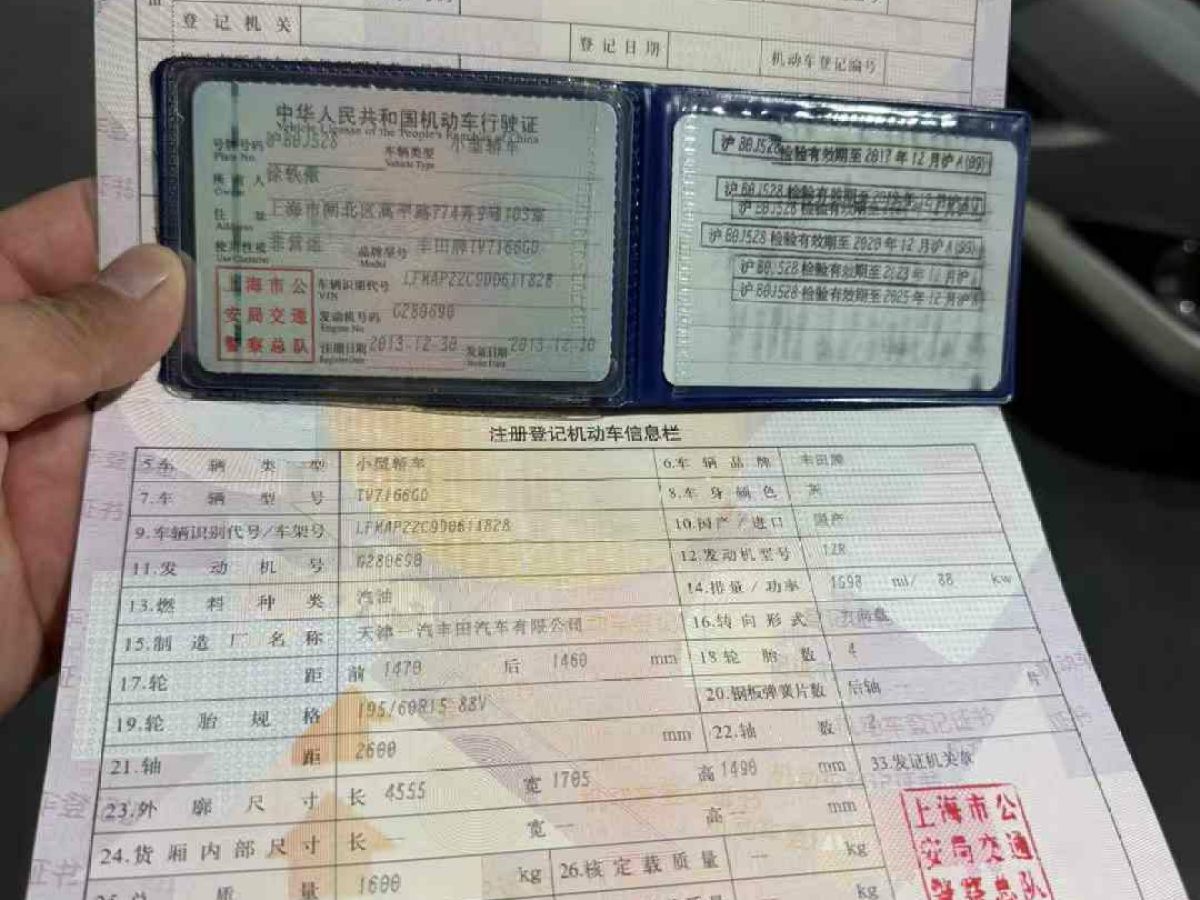 登记机关
登记日期
机动车登记编号
中华人民共和国机动车行驶证
Vehicle License of the People's Republic of China
号牌号码 沪BBJ528 车辆类型 小型轿车
Plate No. Vehicle Type
所有人
Owner
住址 上海市闸北区高平路774弄9号103室
Address
使用性质 非营运 品牌型号 丰田牌TV7166GD
Use Character Model
上海市公
安局交通
警察总队
车辆识别代号
VIN
发动机号码 G280690
Engine No.
注册日期 2013-12-30 发证日期 2013-12-30
Register Date Issue Date
沪BBJ528 检验有效期至2017年12月沪A(99)
沪BBJ528 检验有效期至
沪BBJ528 检验有效期至2020年12月沪A(99)
沪BBJ528 检验有效期至2023年12月沪A
沪BBJ528 检验有效期至2025年12月沪A
注册登记机动车信息栏
5.车辆类型 小型轿车 6.车辆品牌 丰田牌
7.车辆型号 TV7166GD 8.车身颜色 灰
9.车辆识别代号/车架号 10.国产/进口 国产
11.发动机号 G280690 12.发动机型号 1ZR
13.燃料种类 汽油 14.排量/功率 1598 ml/ 88 kw
15.制造厂名称 天津一汽丰田汽车有限公司 16.转向形式 方向盘
17.轮距 前 1470 后 1460 mm 18.轮胎数 4
19.轮胎规格 195/60R15 88V 20.钢板弹簧片数 后轴 一 片
21.轴距 2600 mm 22.轴数 2
23.外廓尺寸 长 4555 宽 1705 高 1490 mm 33.发证机关章
24.货厢内部尺寸 长 一 宽 一 高 一 mm
质量 1600 kg 26.核定载质量 一 kg
kg
上海市公
安局交通
警察总队